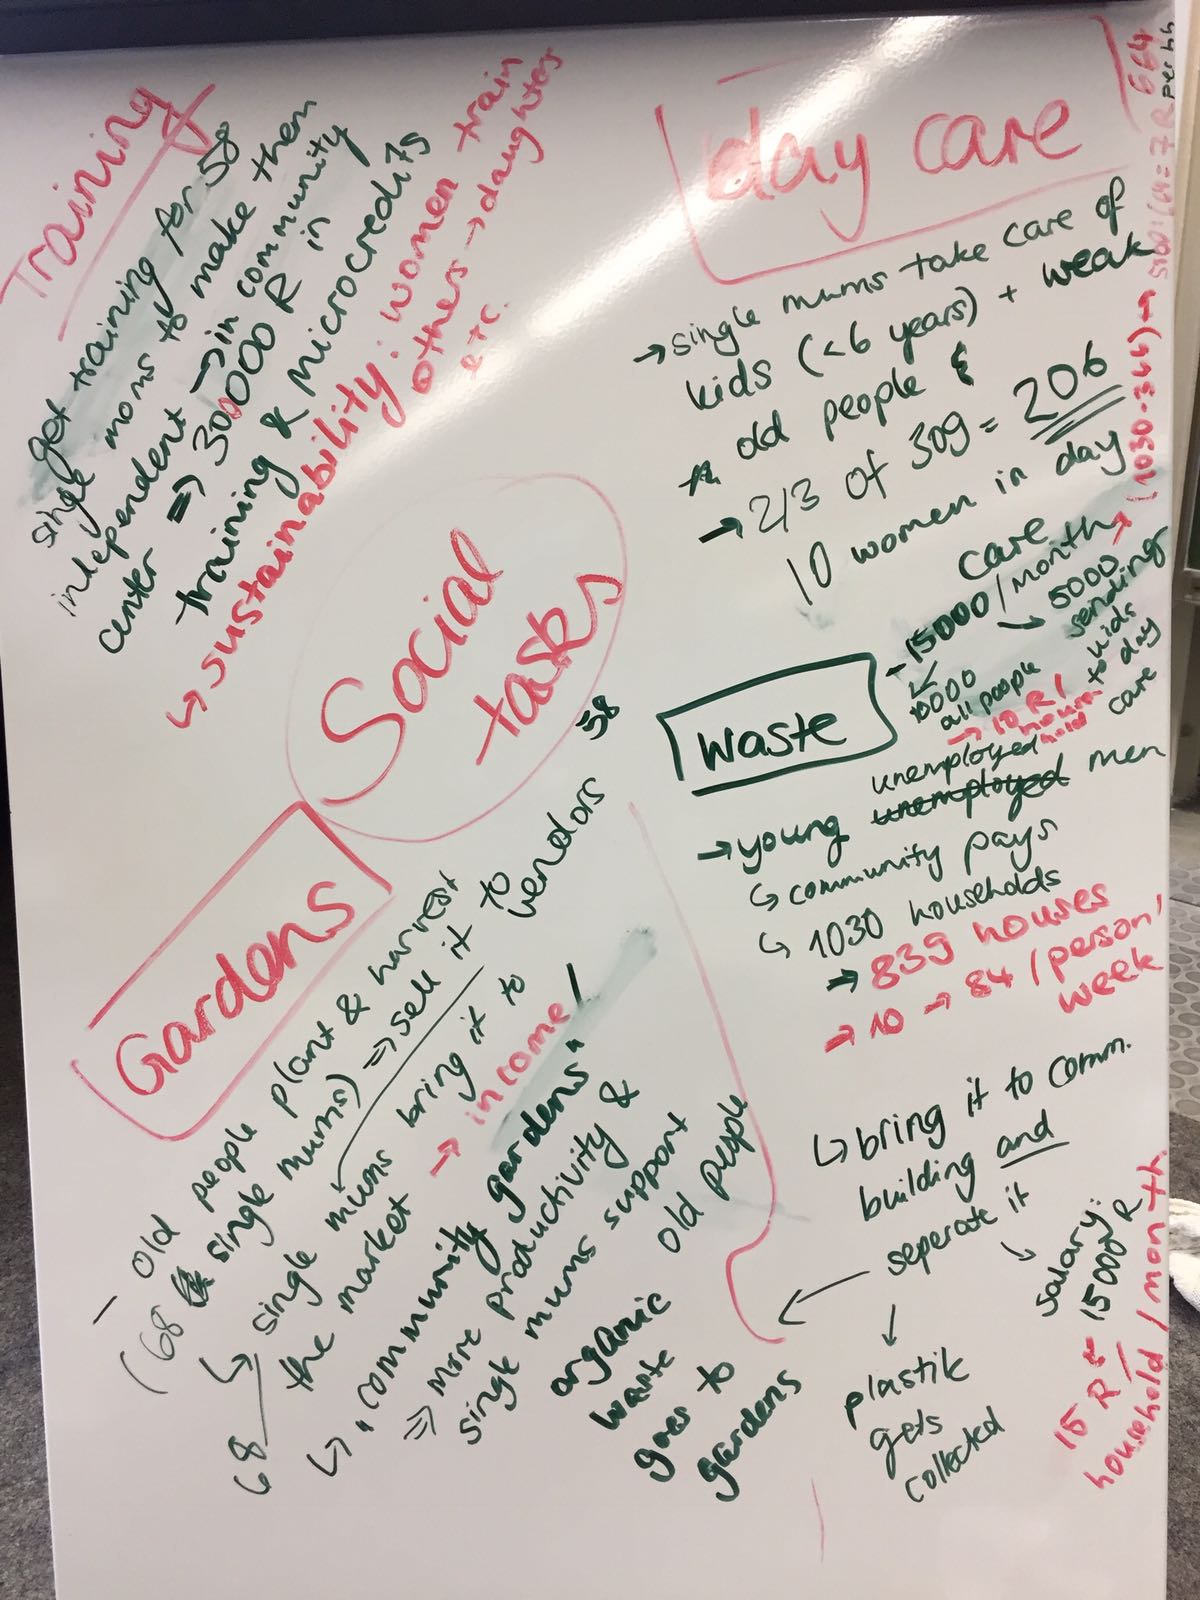 Training
get training for 58
single moms to make them
independent → in community
center ⇒ 30000 R in
training & microcredits
↳ sustainability: women train
others → daughters
etc.
day care
→ single mums take care of
kids (<6 years) + weak
old people &
→ 2/3 of 309 = 206
10 women in day
care
- 15000/month → (1030-366) →
5100:664 = 7 R
664
per hh
10000
all people
→ 10 R/
household
→ 5000
sending
kids
to day
care
Social
tasks
Waste
unemployed
→ young unemployed men
↳ community pays
↳ 1030 households
→ 839 houses
→ 10 → 84/person/
week
↳ bring it to comm.
building and
seperate it
↘ salary:
15000 R
15 R
household/month
plastik
gets
collected
organic
waste
goes to
gardens
Gardens
- old people plant & harvest
(68 single mums) ⇒ sell it to
vendors 58
↳ single mums bring it to
the market → income/
68
↳ "community gardens"
⇒ more productivity &
single mums support
old people